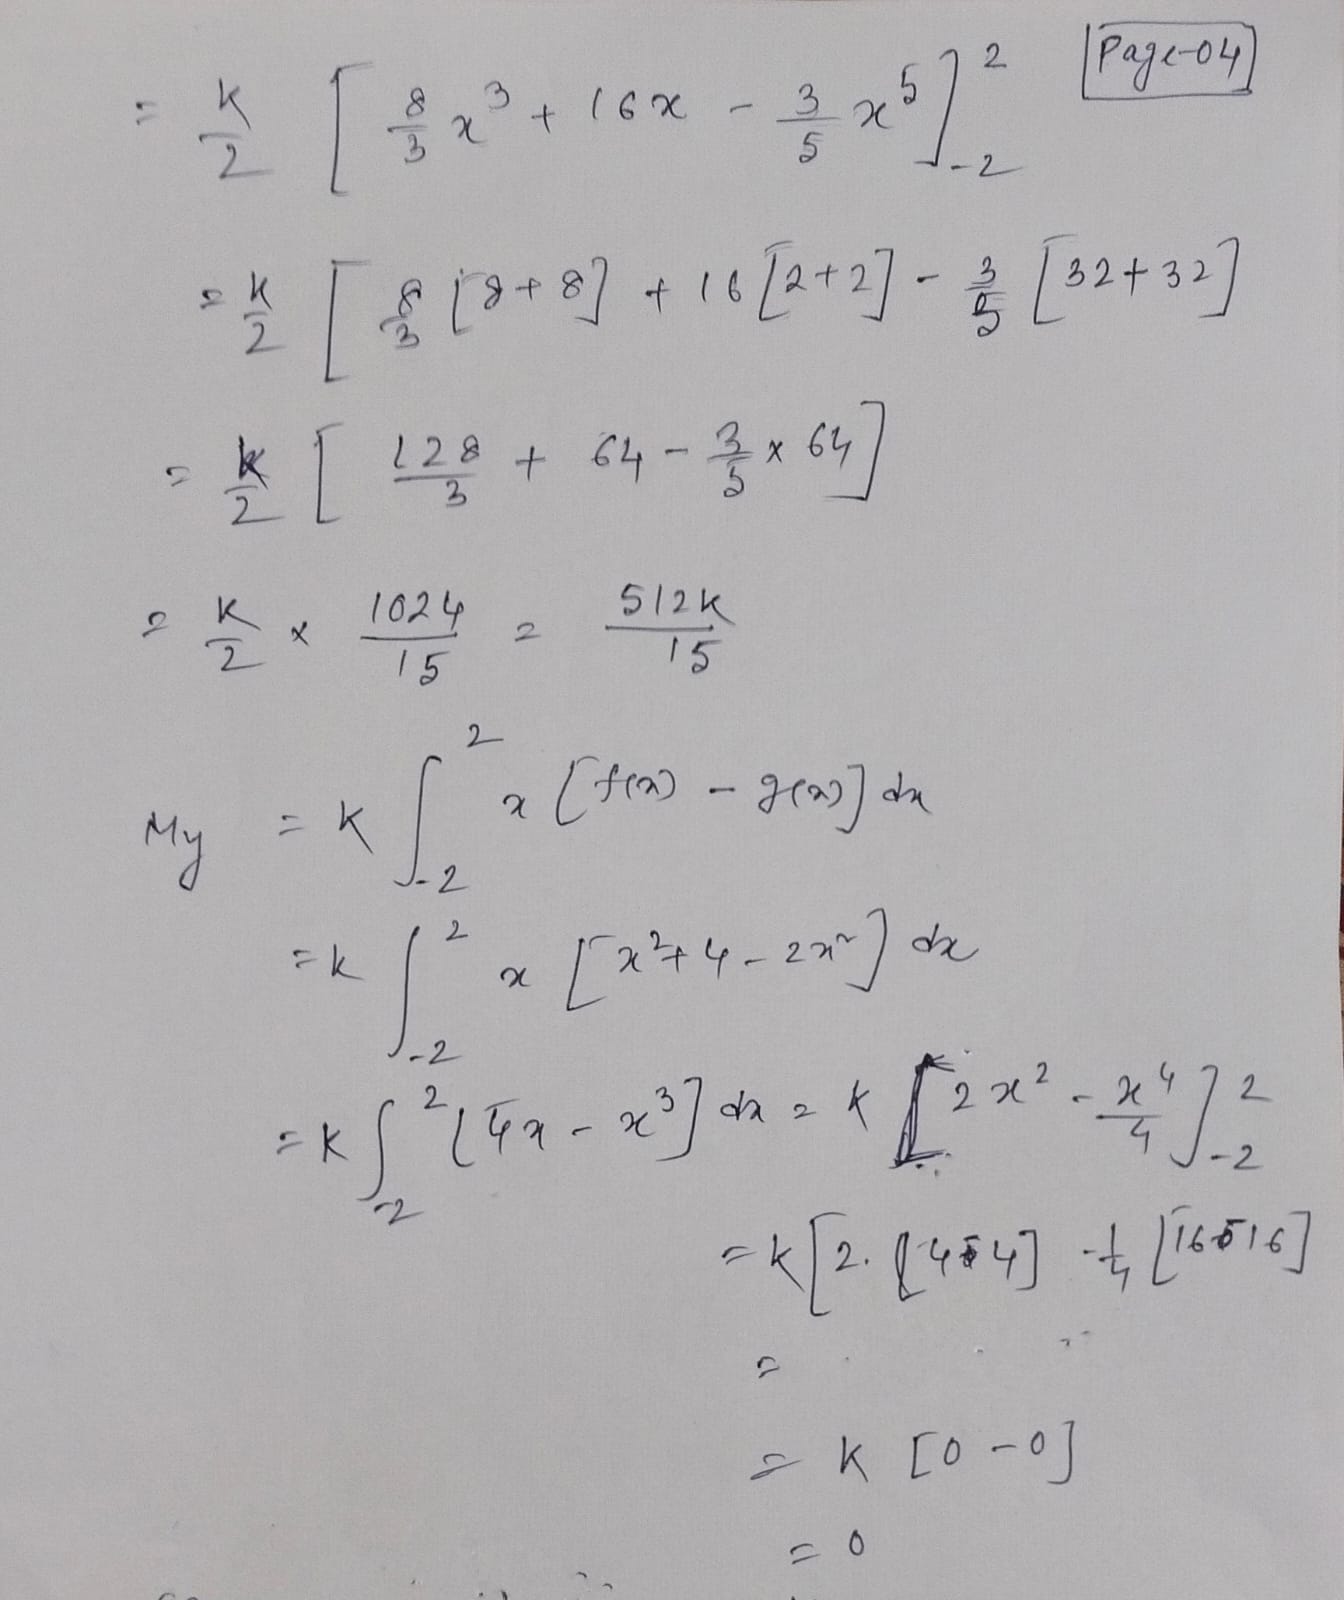 Page-04
= k/2 [ 8/3 x³ + 16x - 3/5 x⁵ ]₋₂²
= k/2 [ 8/3 [8+8] + 16 [2+2] - 3/5 [32+32]
= k/2 [ 128/3 + 64 - 3/5 x 64 ]
= k/2 x 1024/15 = 512k/15
My = k ∫₋₂² x [f(x) - g(x)] dx
= k ∫₋₂² x [x²+4-2x²] dx
= k ∫₋₂² [4x - x³] dx = k [2x² - x⁴/4]₋₂²
= k [2. [4-4] - 1/4 [16-16]
=
= k [0-0]
= 0